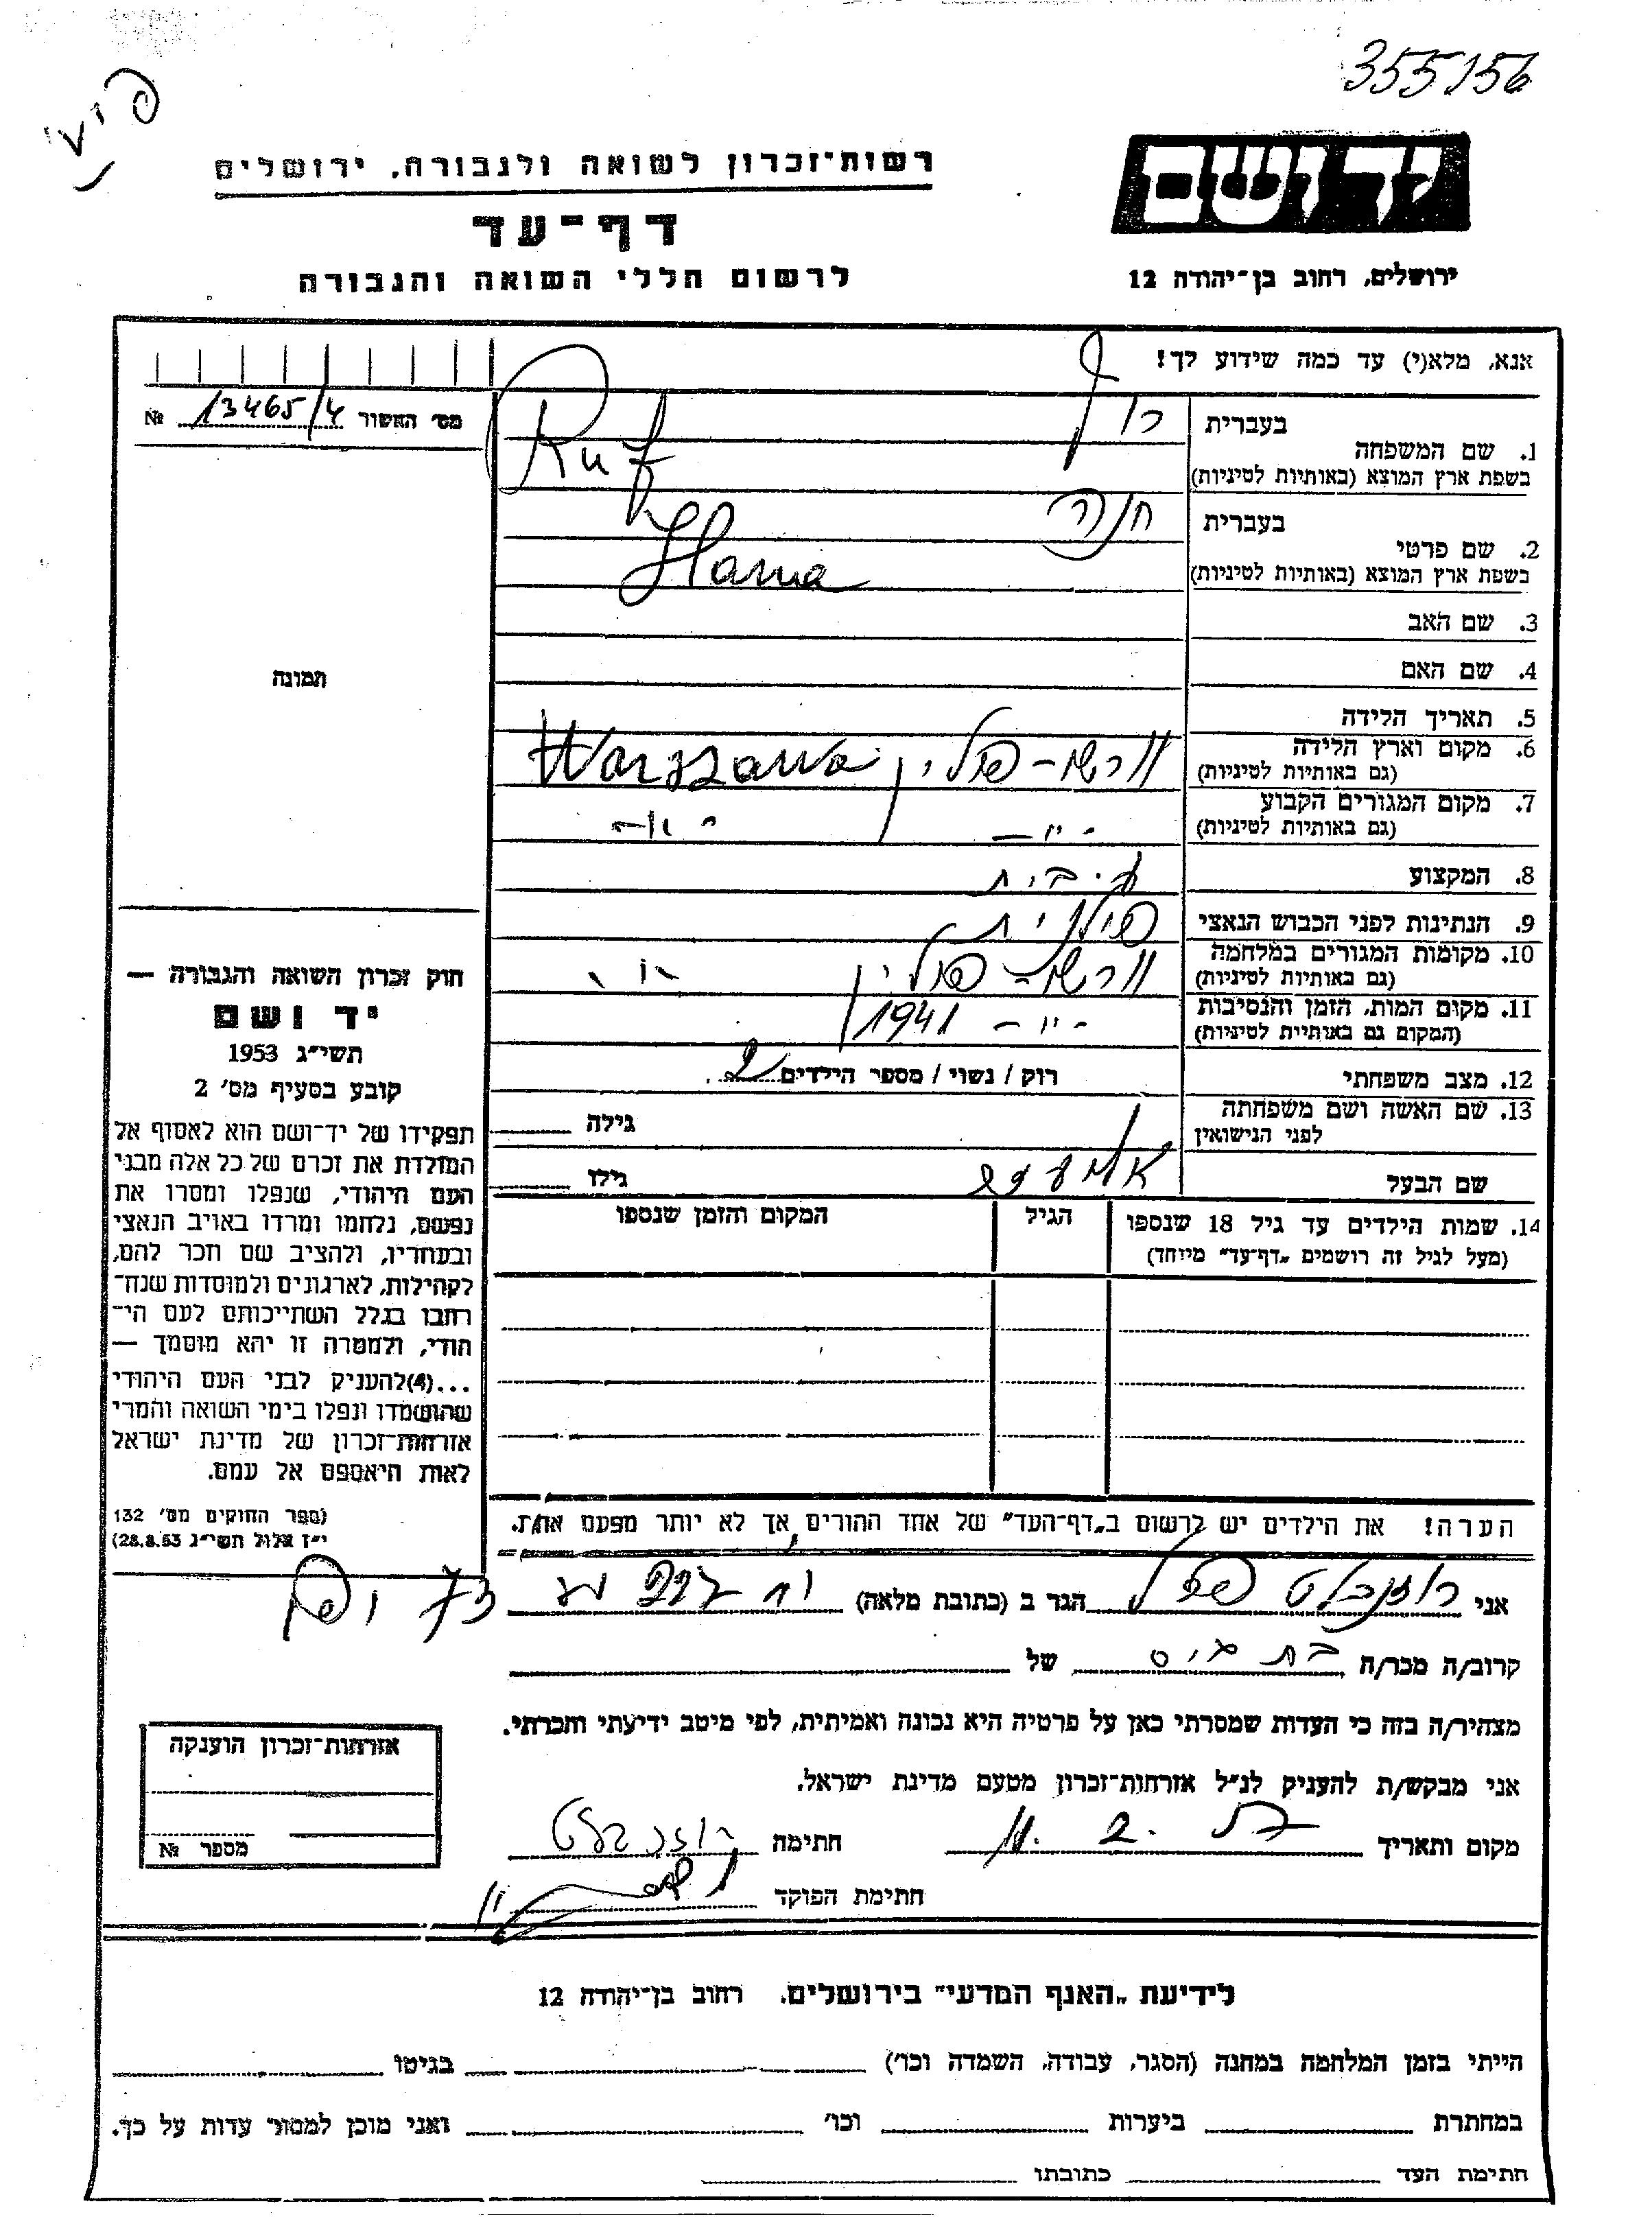 355156
רשות־זכרון לשואה ולגבורה, ירושלים
דף־עד
לרשום חללי השואה והגבורה
יד ושם
ירושלים, רחוב בן־יהודה 12
אנא, מלא(י) עד כמה שידוע לך!
מס' האשור 13465/4 №
1. שם המשפחה
בעברית רוף
בשפת ארץ המוצא (באותיות לטיניות) Ruf
2. שם פרטי
בעברית חנה
בשפת ארץ המוצא (באותיות לטיניות) Hanna
3. שם האב
4. שם האם
5. תאריך הלידה
6. מקום וארץ הלידה ורשו - פולין Warszawa
(גם באותיות לטיניות)
7. מקום המגורים הקבוע - " - - " -
(גם באותיות לטיניות)
8. המקצוע
9. הנתינות לפני הכבוש הנאצי פולנית
10. מקומות המגורים במלחמה ורשו - פולין - " -
(גם באותיות לטיניות)
11. מקום המות, הזמן והנסיבות - " - 1941
(המקום גם באותיות לטיניות)
12. מצב משפחתי רוק / נשוי / מספר הילדים 2
13. שם האשה ושם משפחתה
לפני הנישואין
גילה
שם הבעל
גילו
14. שמות הילדים עד גיל 18 שנספו
(מעל לגיל זה רושמים „דף־עד" מיוחד)
הגיל
המקום והזמן שנספו
הערה! את הילדים יש לרשום ב„דף־העד" של אחד ההורים, אך לא יותר מפעם אחת.
תמונה
חוק זכרון השואה והגבורה —
יד ושם
תשי"ג 1953
קובע בסעיף מס' 2
תפקידו של יד־ושם הוא לאסוף אל
המולדת את זכרם של כל אלה מבני
העם היהודי, שנפלו ומסרו את
נפשם, נלחמו ומרדו באויב הנאצי
ובעוזריו, ולהציב שם וזכר להם,
לקהילות, לארגונים ולמוסדות שנח־
רבו בגלל השתייכותם לעם הי־
הודי, ולמטרה זו יהא מוסמך —
...(4)להעניק לבני העם היהודי
שהושמדו ונפלו בימי השואה והמרי
אזרחות־זכרון של מדינת ישראל
לאות היאספם אל עמם.
(ספר החוקים מס' 132
י"ז אלול תשי"ג 28.8.53)
אני רוזנבלט הגר ב (כתובת מלאה)
קרוב/ה מכר/ה בת גיס של
מצהיר/ה בזה כי העדות שמסרתי כאן על פרטיה היא נכונה ואמיתית, לפי מיטב ידיעתי והכרתי.
אני מבקש/ת להעניק לנ"ל אזרחות־זכרון מטעם מדינת ישראל.
מקום ותאריך
חתימה רוזנבלט
חתימת הפוקד
אזרחות־זכרון הוענקה
מספר №
לידיעת „האגף המדעי" בירושלים. רחוב בן־יהודה 12
הייתי בזמן המלחמה במחנה (הסגר, עבודה, השמדה וכו') בגיטו
במחתרת ביערות וכו' ואני מוכן למסור עדות על כך.
חתימת העד כתובתו